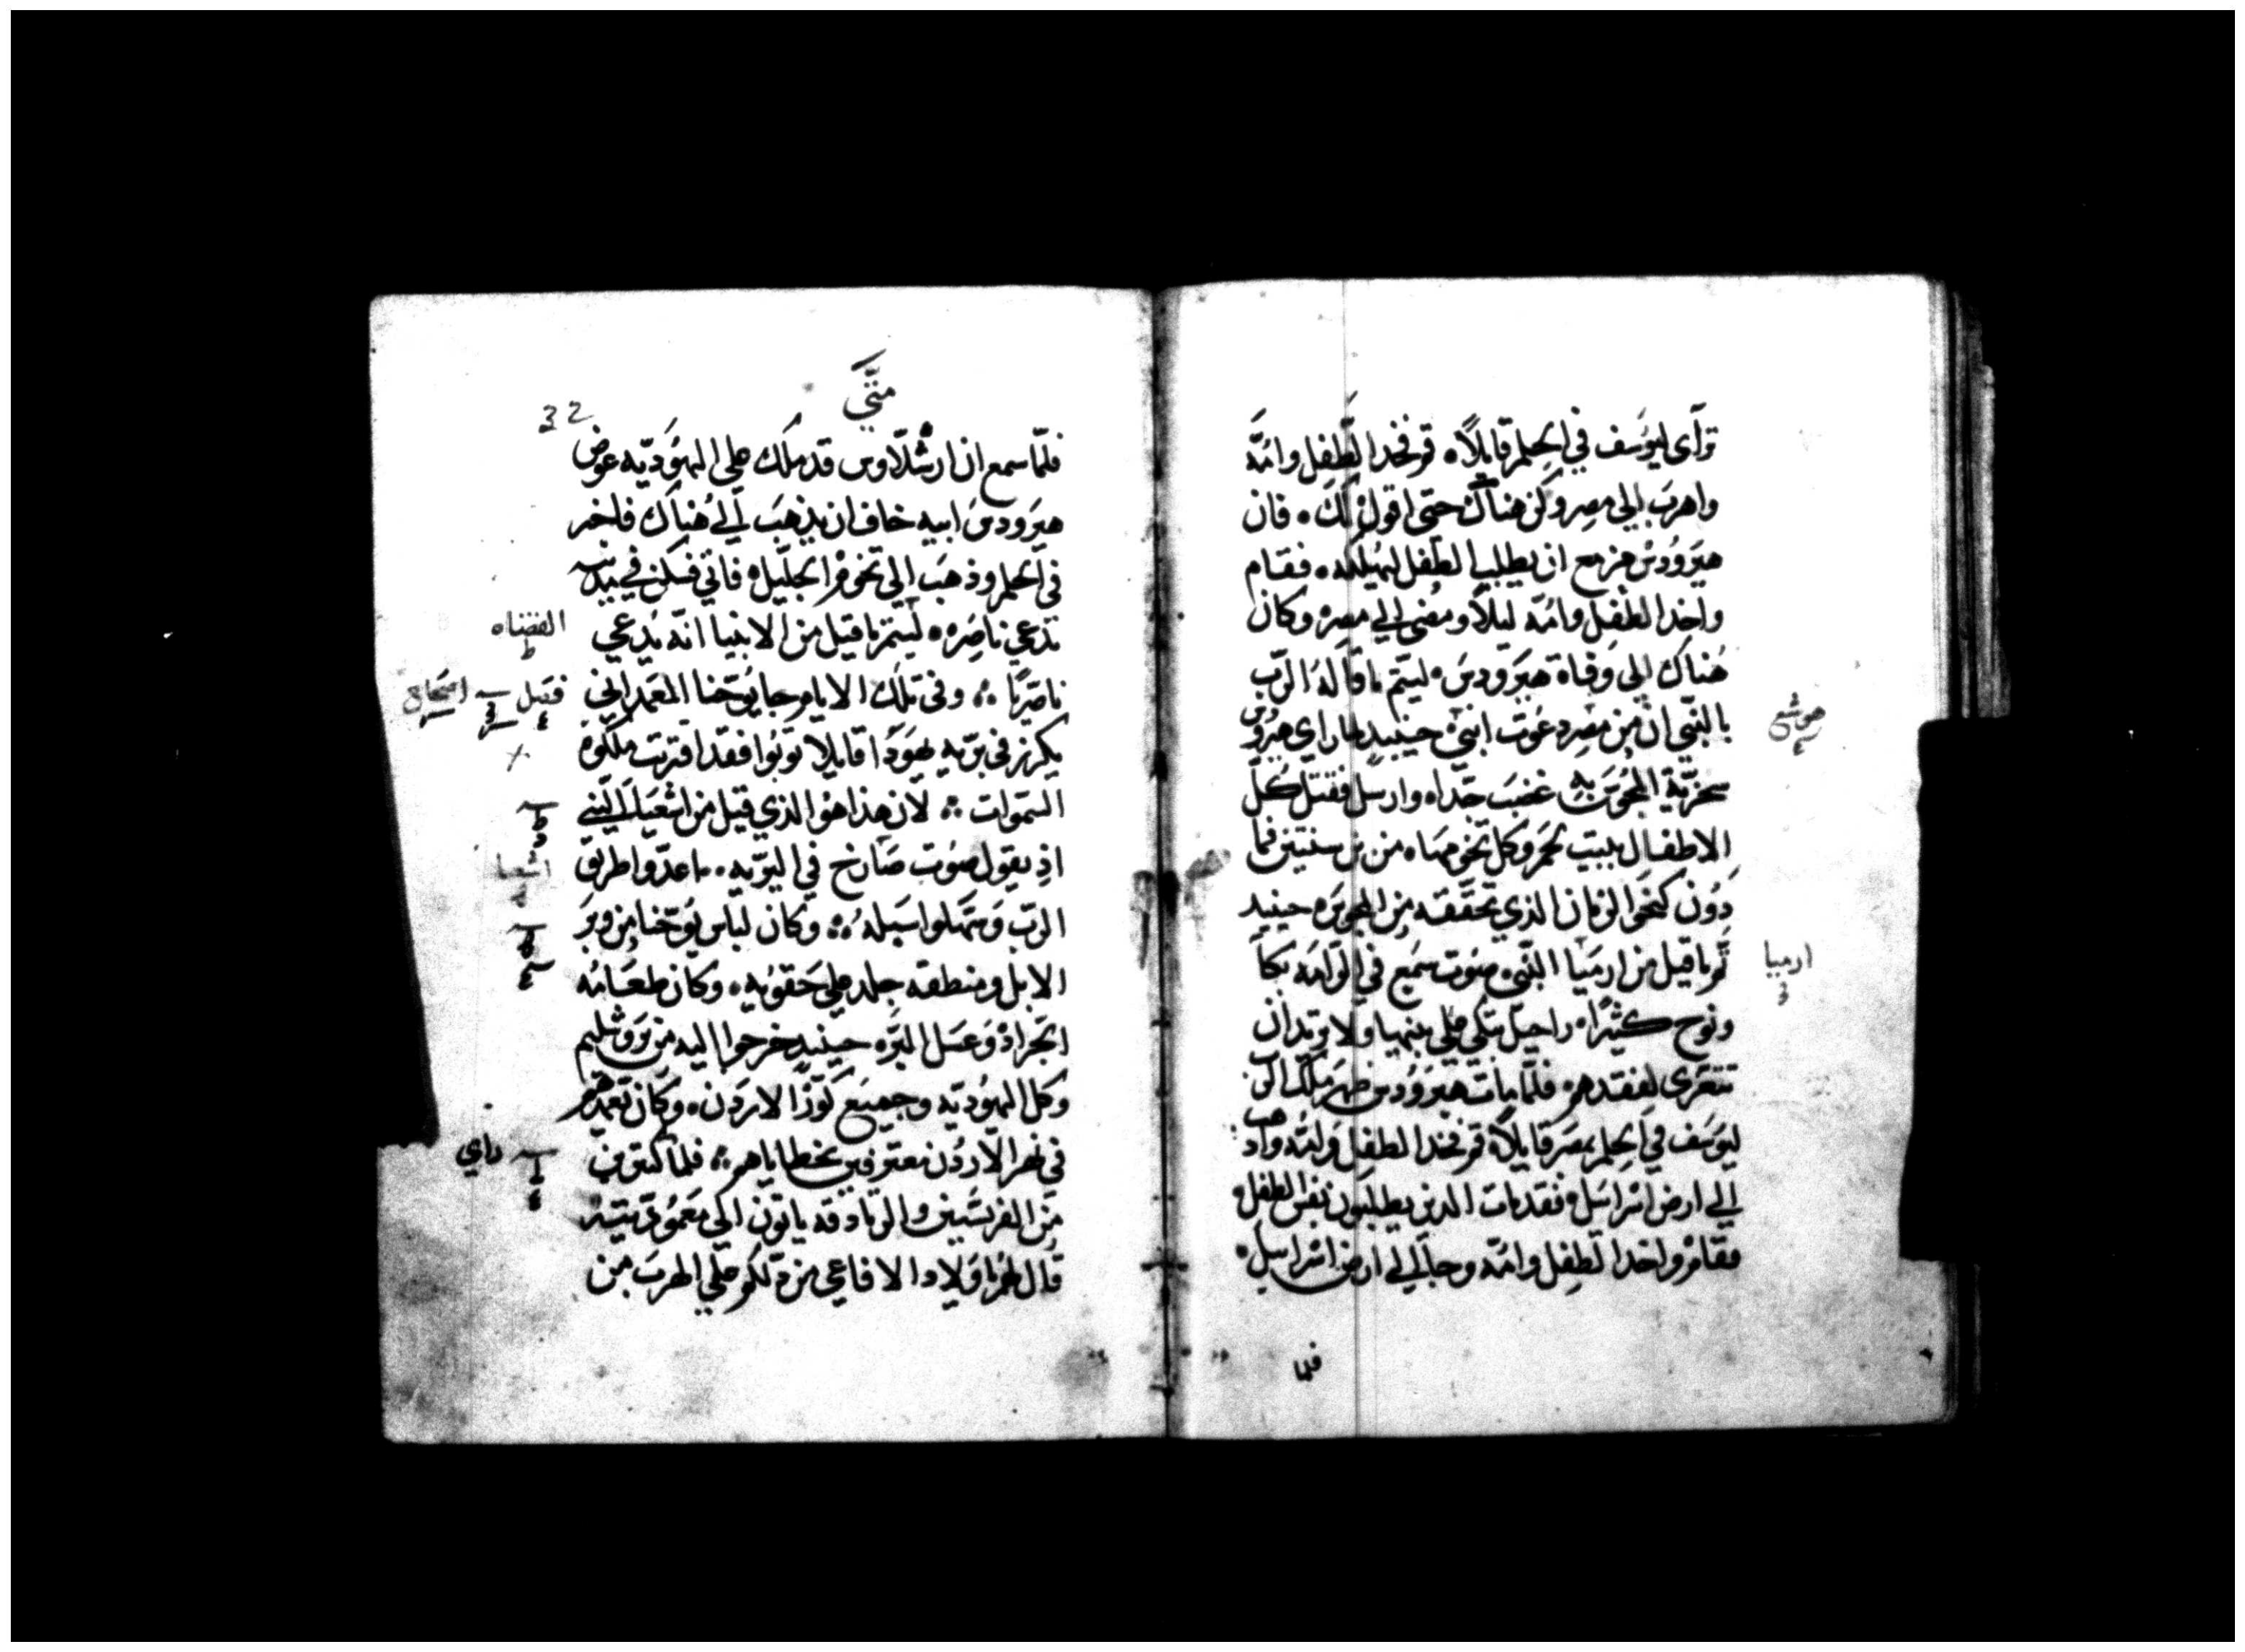 ترآى ليوسف في الحلم قايلاً ۰ قم فخد الطفل وامّه
واهرب الى مصر وكن هناك حتى اقول لك ۰ فان
هيرودس مزمع ان يطلب الطفل ليهلكه ۰ فقام
واخد الطفل وامّه ليلاً ومضى الي مصر ۰ وكان
هُناك الي وفاة هيرودس ۰ ليتم ما قاله الربّ
بالنبّي ان من مصر دعوت ابني ۰ حينيد لما راي هيرودس
سخريّة المجوس به غضب جدّا ۰ وارسل فقتل كل
الاطفال ببيت لحم وكل تخومها ۰ من بن سنتين فما
دون كنحو الزمان الذي تحققه من المجوس ۰ حينيد
تم ما قيل من ارميا النبي ۰ صوت سمع في الرامه بكا
ونوح كثيرًا ۰ راحيل تبكي علي بنيها ولا تريد ان
تتعزى لفقدهم ۰ فلمّا مات هيرودس ظهر ملاك الرب
ليوسف في الحلم بمصر قايلاً ۰ قم فخد الطفل وامّه واذهب
الي ارض اسراييل ۰ فقد مات الدين يطلبون نفس الطفل ۰
فقام واخد الطفل وامّه وجا الي ارض اسراييل ۰
فلما
هوشع
٤
ارميا
3
متّي
32
فلمّا سمع ان ارشلّاوس قد ملك على اليهوديّه عوض
هيرودس ابيه خاف ان يذهب الي هُناك فاخبر
في الحلم وذهب الي تخوم الجليل ۰ فاتي فسكن في مدينه
تدعي ناصره ۰ ليتم ما قيل من الانبيا انّه يُدعي
ناصريًا ؞ وفي تلك الايام جا يوحنا المعمداني
يكرز في بريه يهودا قايلا توبوا فقد اقتربت ملكوة
السموات ؞ لان هذا هو الذي قيل من اشعيا النبي
اذ يقول صوت صارخ في البريه ۰ اعدّوا طريق
الرب وسهلوا سبله ؞ وكان لباس يوحنا من وبر
الابل ومنطقه جلد علي حقويه ۰ وكان طعامه
الجراد وعسل البر ۰ حينيد خرجوا اليه من يروشليم
وكل اليهوديه وجميع كورة الاردن ۰ وكان يعمدهم
في نهر الاردن معترفين بخطاياهم ؞ فلما كثيرين
من الفريسيين والزنادقه ياتون الى معموديته
قال لهم يا اولاد الافاعي من دلكم علي الهرب من
القضاه
ط
فصل
٤
اسحاق
اشعيا
راي